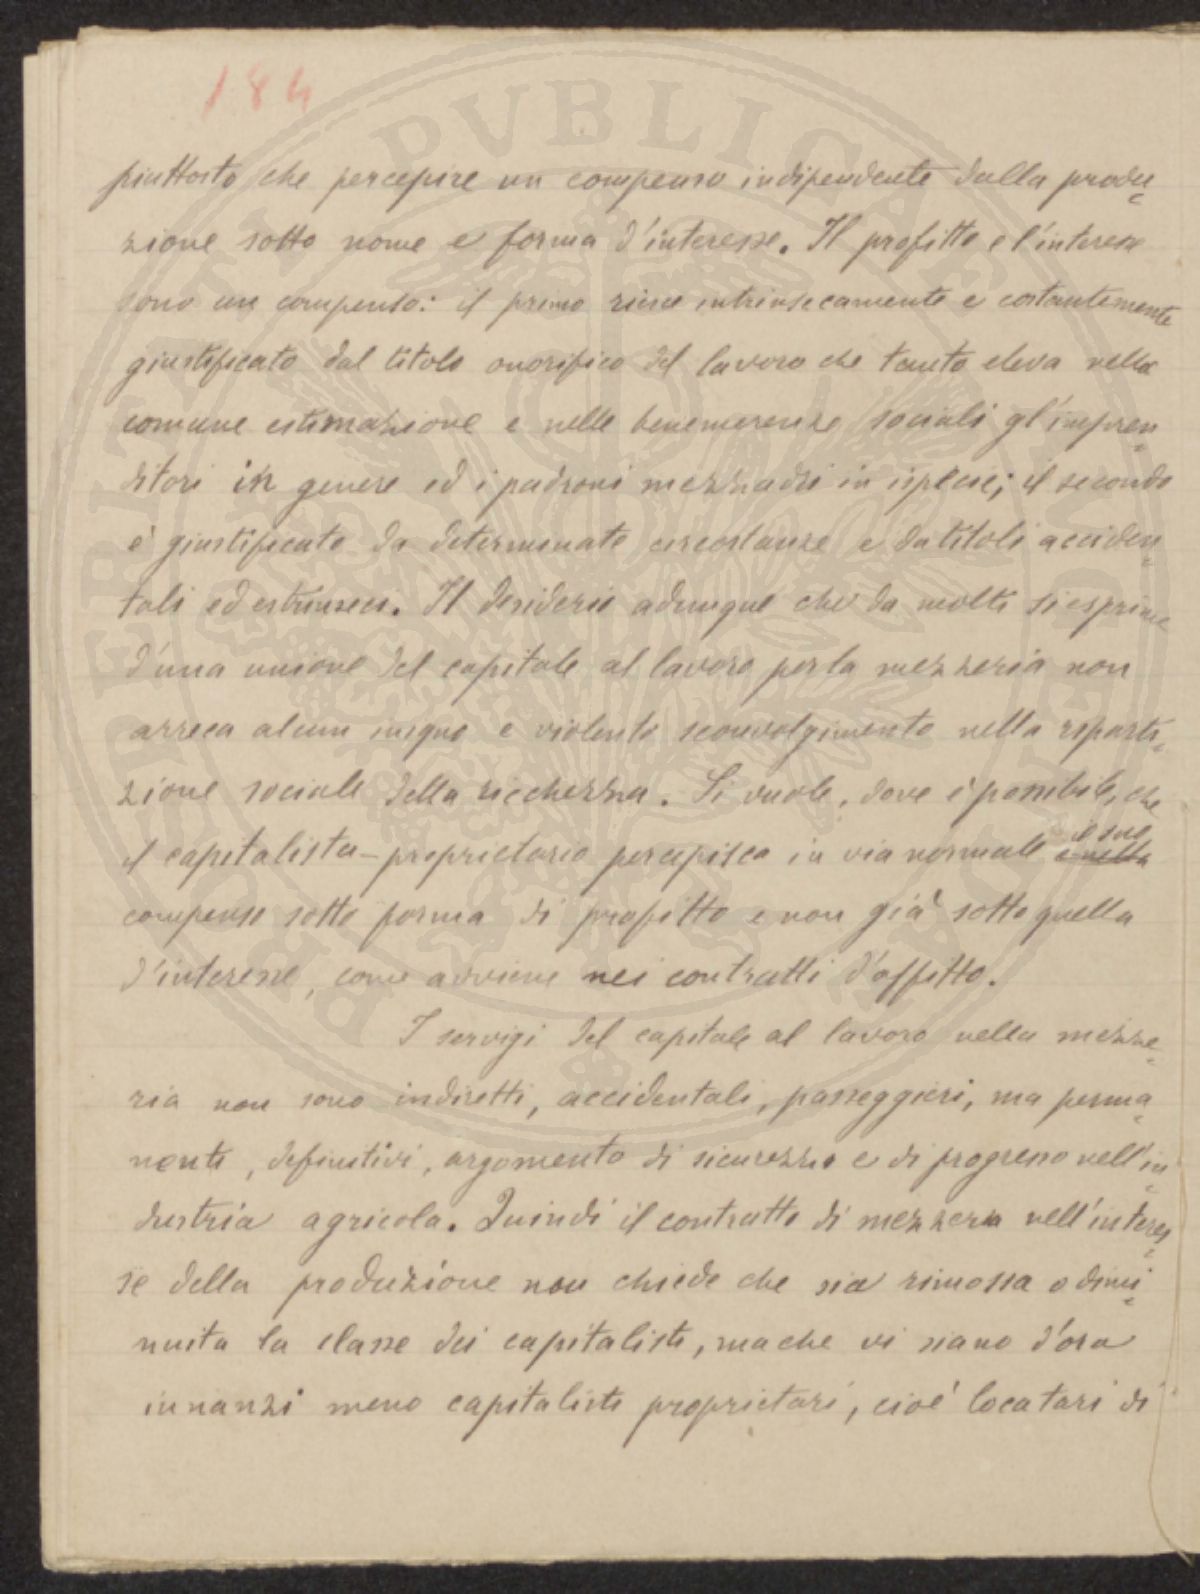 184
piuttosto che percepire un compenso indipendente dalla produ=
zione sotto nome e forma d'interesse. Il profitto e l'interesse
sono un compenso: il primo viene intrinsecamente e costantemente
giustificato dal titolo onorifico del lavoro che tanto eleva nella
comune estimazione e nelle benemerenze sociali gl'impren=
ditori in genere ed i padroni mezzadri in isplecie; il secondo
è giustificato da determinate circostanze e da titoli acciden=
tali ed estrinseci. Il desiderio adunque che da molti si esprime
d'una unione del capitale al lavoro per la mezzeria non
arreca alcun iniquo e violento sconvolgimento nella riparti=
zione sociale della ricchezza. Si vuole, dove è possibile, che
il capitalista-proprietario percepisca in via normale il suo
compenso sotto forma di profitto e non già sotto quella
d'interesse, come avviene nei contratti d'affitto.
I servigi del capitale al lavoro nella mezze=
ria non sono indiretti, accidentali, passeggieri, ma perma=
nenti, definitivi, argomento di sicurezza e di progresso nell'in=
dustria agricola. Quindi il contratto di mezzeria nell'interes=
se della produzione non chiede che sia rimossa o dimi=
nuita la classe dei capitalisti, ma che vi siano d'ora
innanzi meno capitalisti proprietari, cioè locatari di
PVBLICAE